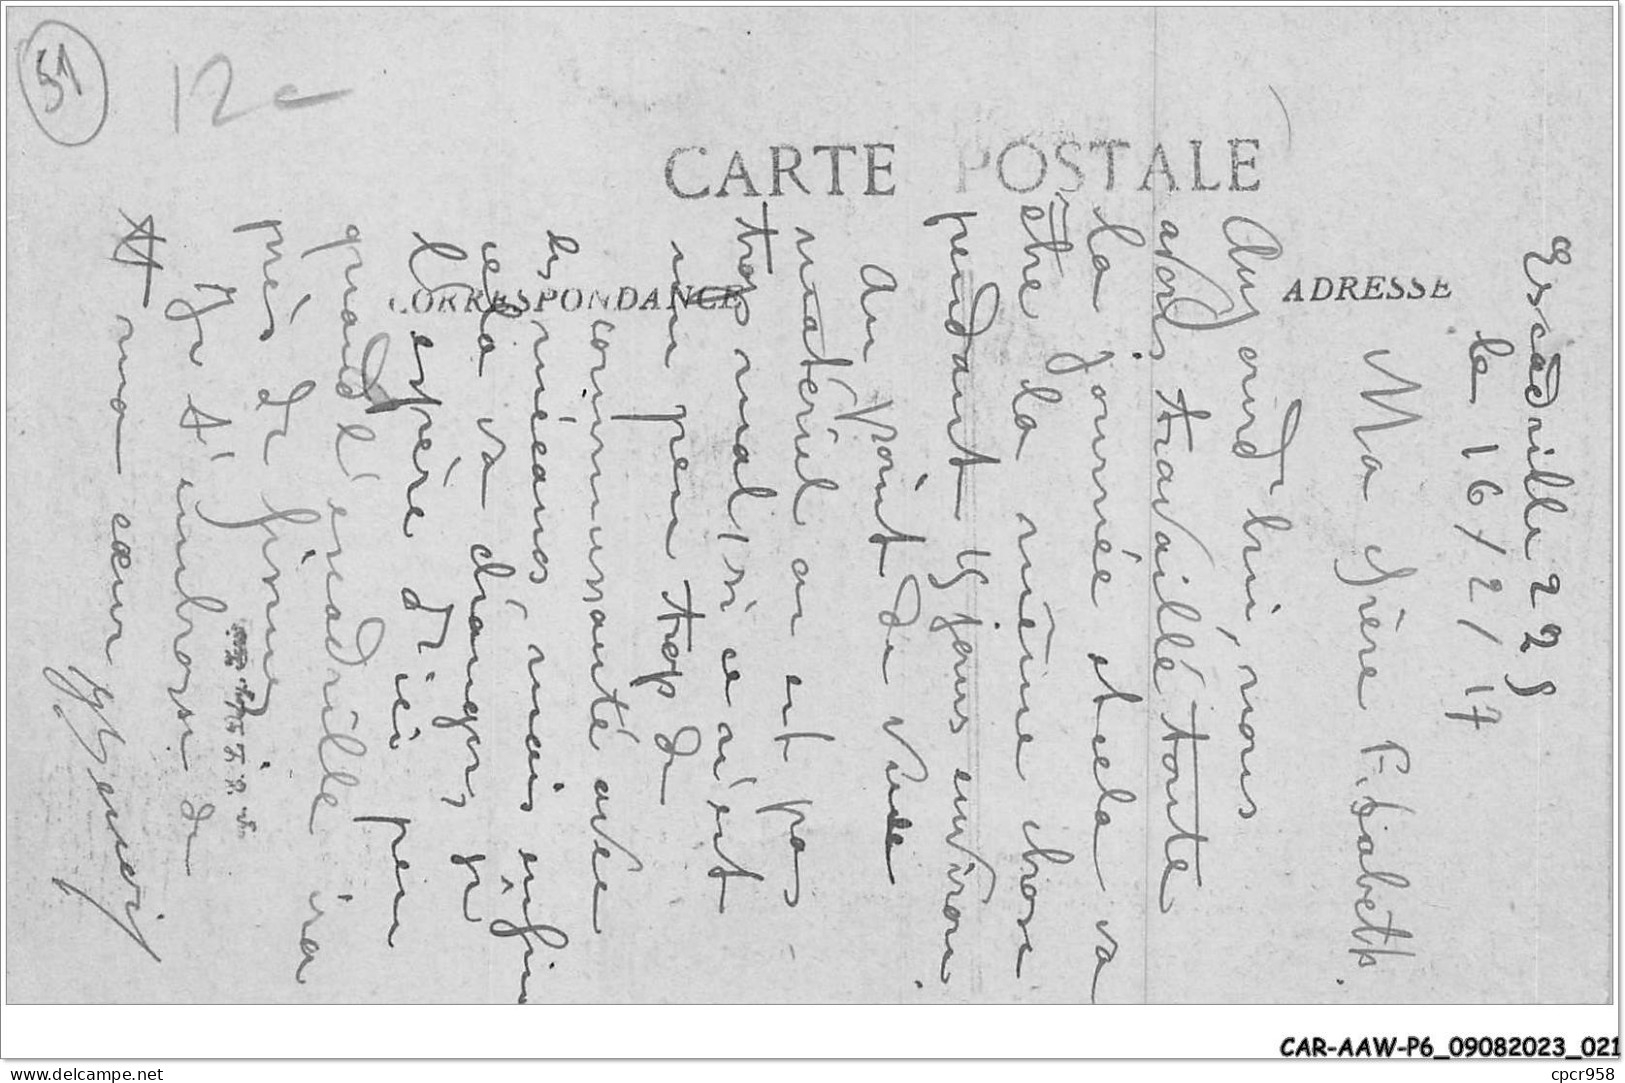 51
12
CARTE POSTALE
CORRESPONDANCE
ADRESSE
Escadrille 229
le 16/2/17
Ma chère Elisabeth.
Aujourd'hui, nous
avons travaillé toute
la journée et cela va
être la même chose
pendant 15 jours environ.
Au point de vue
matériel on est pas
trop mal, si ce n'est
un peu trop de
communauté avec
les mécanos, mais enfin
cela va changer, je
l'espère d'ici peu
quand l'escadrille ira
près de Fismes.
Je t'embrasse de
tt mon cœur
CAR-AAW-P6_09082023_021
delcampe.net
cpcr958